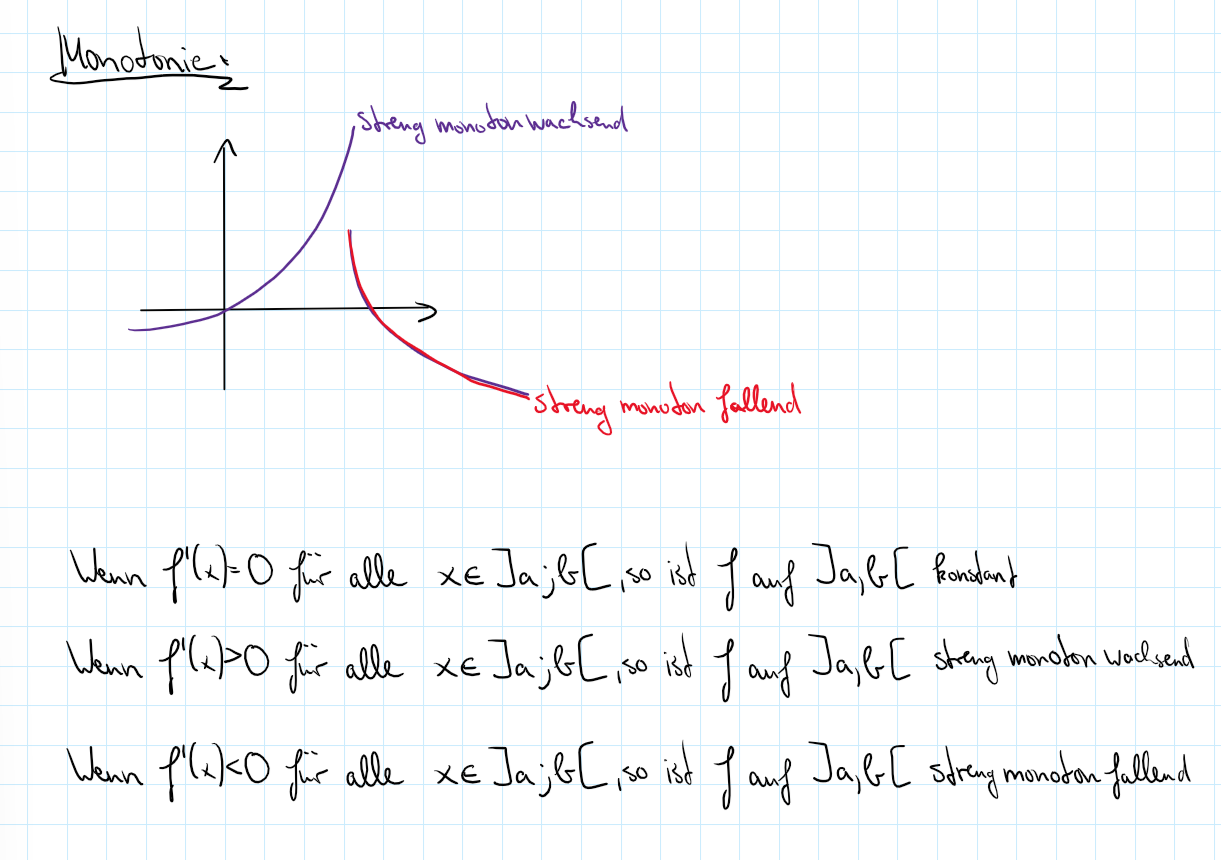 Monotonie:
streng monoton wachsend
streng monoton fallend
Wenn f'(x)=0 für alle x∈]a;b[, so ist f auf ]a,b[ konstant
Wenn f'(x)>0 für alle x∈]a;b[, so ist f auf ]a,b[ streng monoton wachsend
Wenn f'(x)<0 für alle x∈]a;b[, so ist f auf ]a,b[ streng monoton fallend